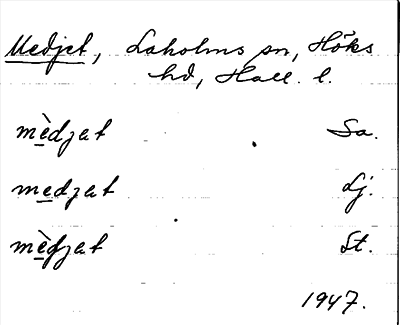 Medjet, Laholms sn, Höks
hd, Hall. l.
mèdjat Sa.
medjat Lj.
mèdjat St.
1947.